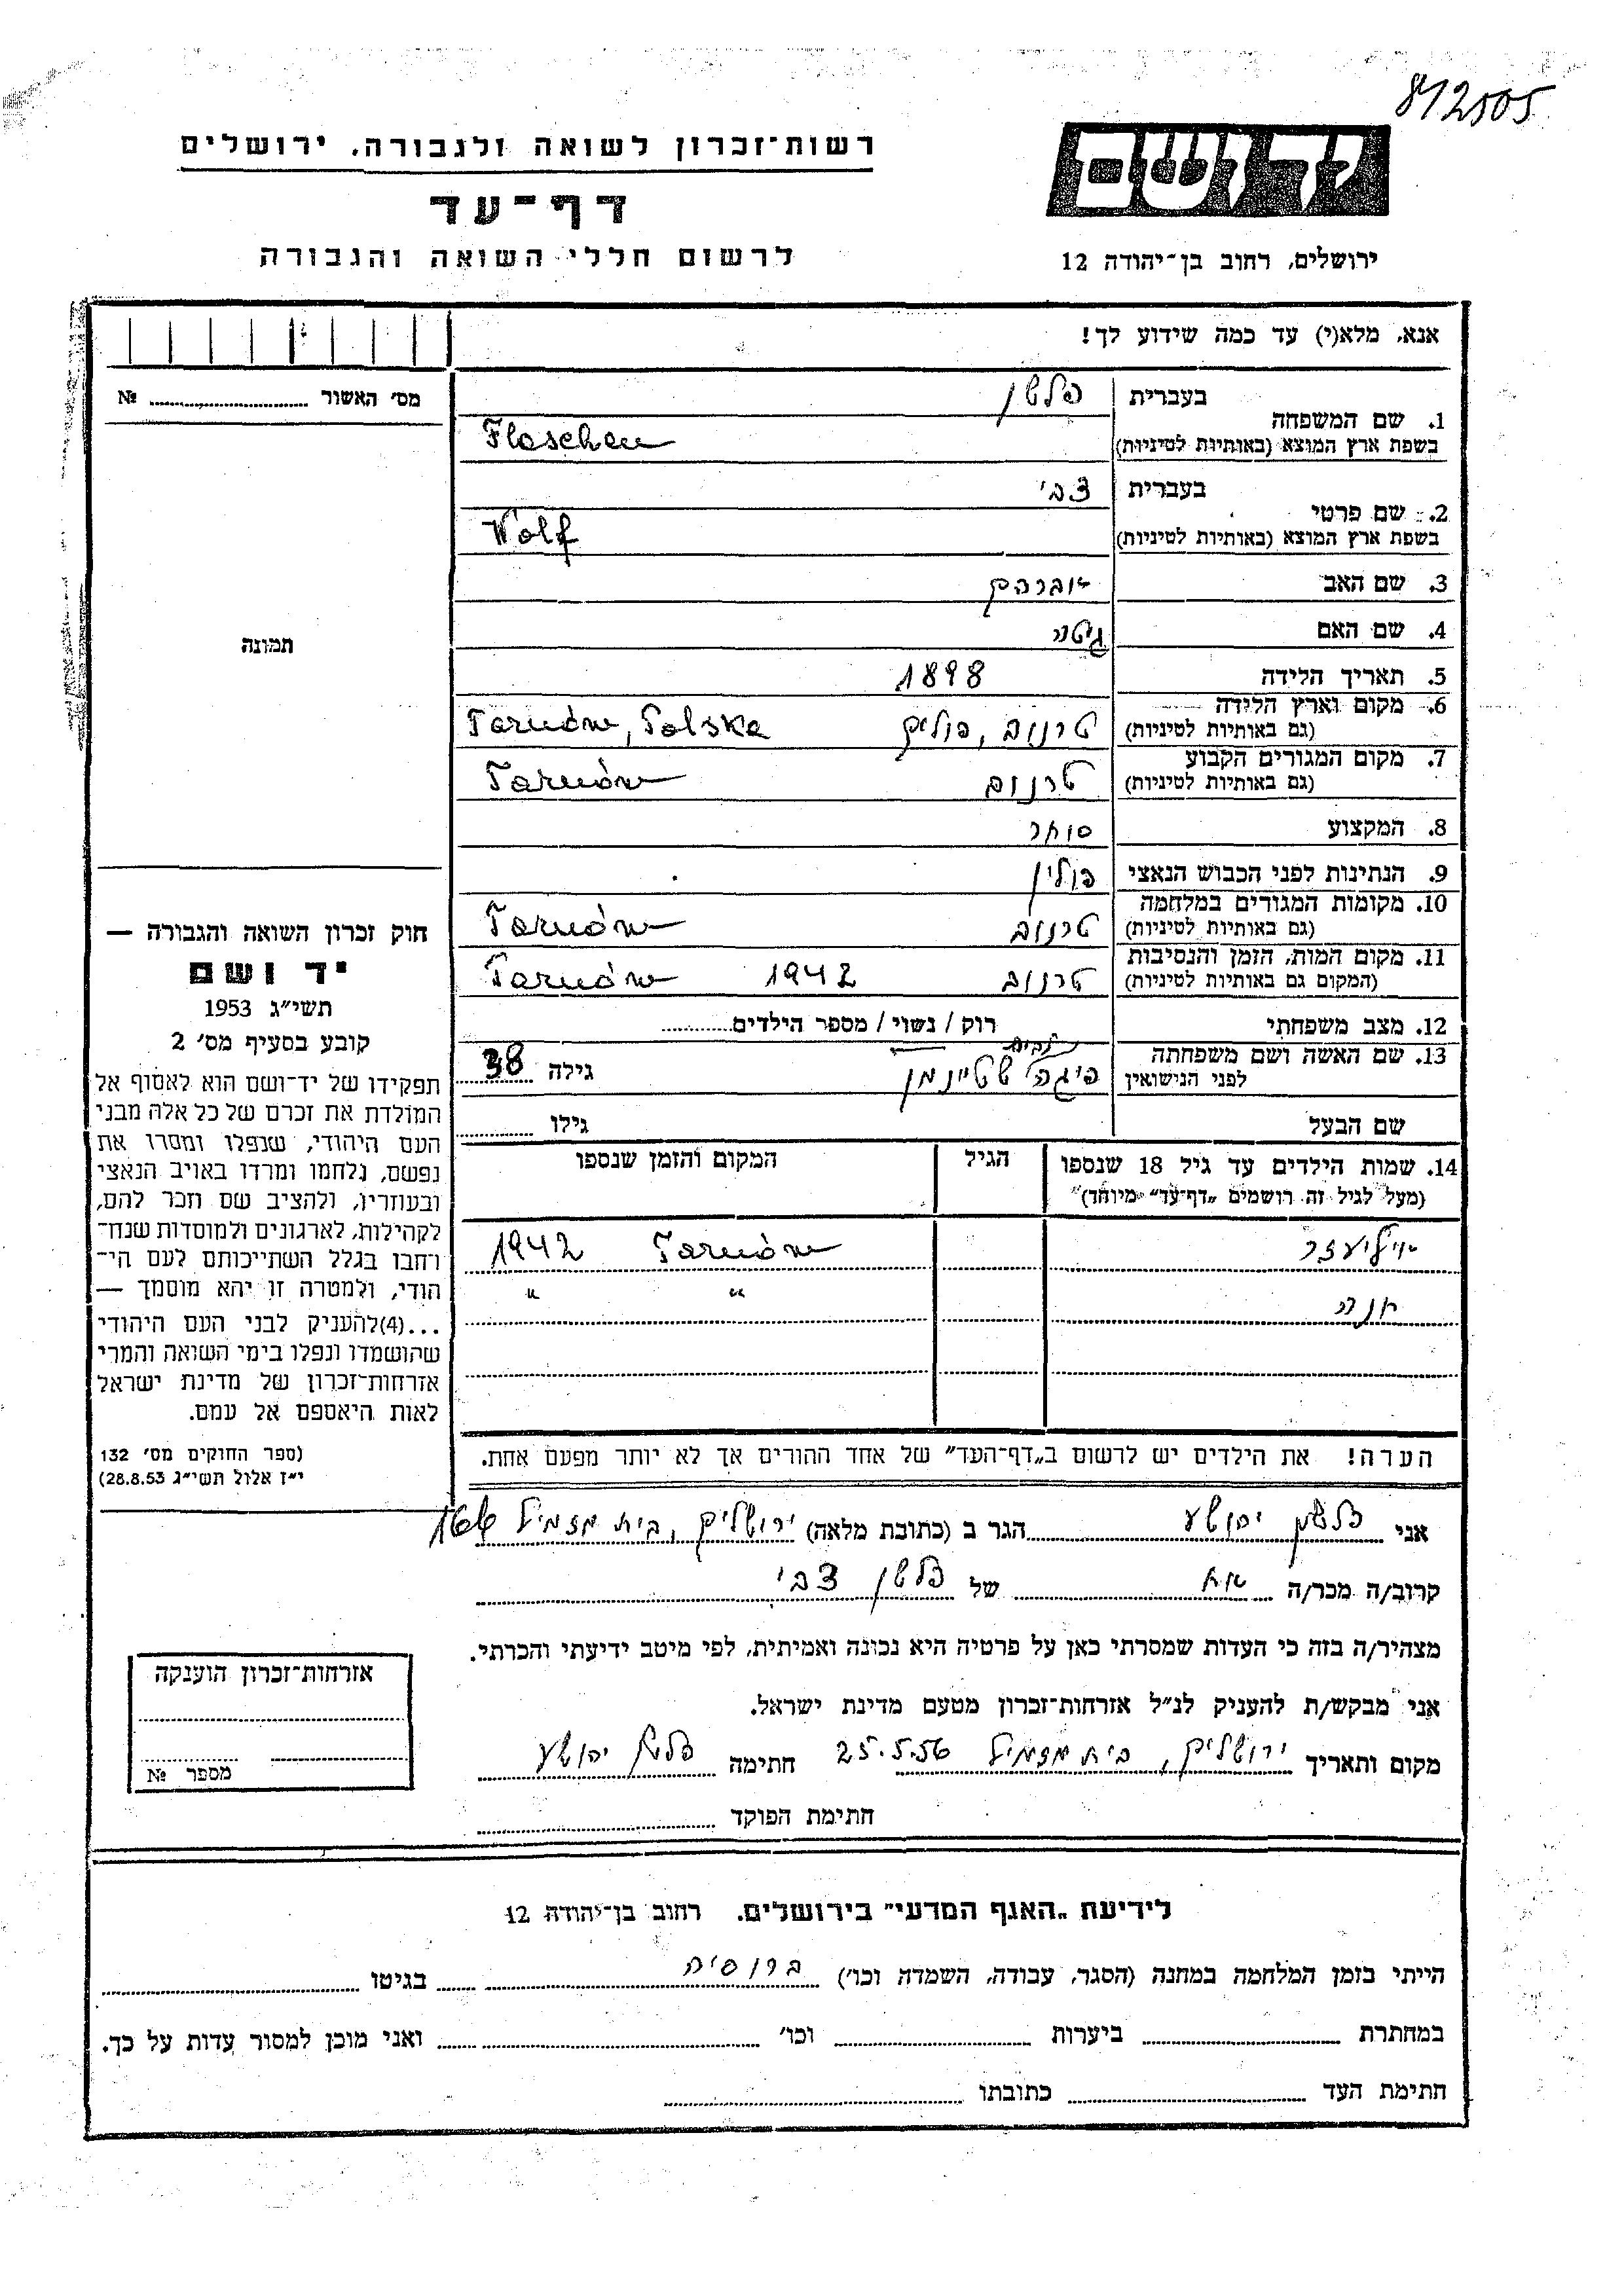 812505
יד ושם
רשות־זכרון לשואה ולגבורה, ירושלים
דף־עד
לרשום חללי השואה והגבורה
ירושלים, רחוב בן־יהודה 12
אנא, מלא(י) עד כמה שידוע לך!
מס' האשור ............ №
תמונה
חוק זכרון השואה והגבורה —
יד ושם
תשי״ג 1953
קובע בסעיף מס' 2
תפקידו של יד־ושם הוא לאסוף אל
המולדת את זכרם של כל אלה מבני
העם היהודי, שנפלו ומסרו את
נפשם, נלחמו ומרדו באויב הנאצי
ובעוזריו, ולהציב שם וזכר להם,
לקהילות, לארגונים ולמוסדות שנח־
רחבו בגלל השתייכותם לעם הי־
הודי, ולמטרה זו יהא מוסמך —
...(4)להעניק לבני העם היהודי
שהושמדו ונפלו בימי השואה והמרי
אזרחות־זכרון של מדינת ישראל
לאות היאספם אל עמם.
(ספר החוקים מס' 132
י״ז אלול תשי״ג 28.8.53)
1. שם המשפחה
בעברית פלשן
בשפת ארץ המוצא (באותיות לטיניות) Flaschen
2. שם פרטי
בעברית צבי
בשפת ארץ המוצא (באותיות לטיניות) Wolf
3. שם האב אברהם
4. שם האם גיטה
5. תאריך הלידה 1898
6. מקום וארץ הלידה
(גם באותיות לטיניות) טרנוב, פולין Tarnów, Polska
7. מקום המגורים הקבוע
(גם באותיות לטיניות) טרנוב Tarnów
8. המקצוע סוחר
9. הנתינות לפני הכבוש הנאצי פולין
10. מקומות המגורים במלחמה
(גם באותיות לטיניות) טרנוב Tarnów
11. מקום המות, הזמן והנסיבות
(המקום גם באותיות לטיניות) טרנוב 1942 Tarnów
12. מצב משפחתי רוק / נשוי / מספר הילדים.........
13. שם האשה ושם משפחתה
לפני הנישואין פיגה שטיינמן גילה 38
שם הבעל גילו .........
14. שמות הילדים עד גיל 18 שנספו הגיל המקום והזמן שנספו
(מעל לגיל זה רושמים „דף־עד״ מיוחד)
אליעזר Tarnów 1942
חנה " "
הערה! את הילדים יש לרשום ב„דף־העד״ של אחד ההורים אך לא יותר מפעם אחת.
אני פלשן יהושע הגר ב (כתובת מלאה) ירושלים, בית מזמיל 166
קרוב/ה מכר/ה אח של פלשן צבי
מצהיר/ה בזה כי העדות שמסרתי כאן על פרטיה היא נכונה ואמיתית, לפי מיטב ידיעתי והכרתי.
אני מבקש/ת להעניק לנ״ל אזרחות־זכרון מטעם מדינת ישראל.
מקום ותאריך ירושלים, בית מזמיל 25.5.56 חתימה פלשן יהושע
חתימת הפוקד
אזרחות־זכרון הוענקה
מספר №
לידיעת „האגף המדעי״ בירושלים. רחוב בן־יהודה 12
הייתי בזמן המלחמה במחנה (הסגר, עבודה, השמדה וכו') ברוסיה בגיטו
במחתרת ביערות וכו' ואני מוכן למסור עדות על כך.
חתימת העד כתובתו